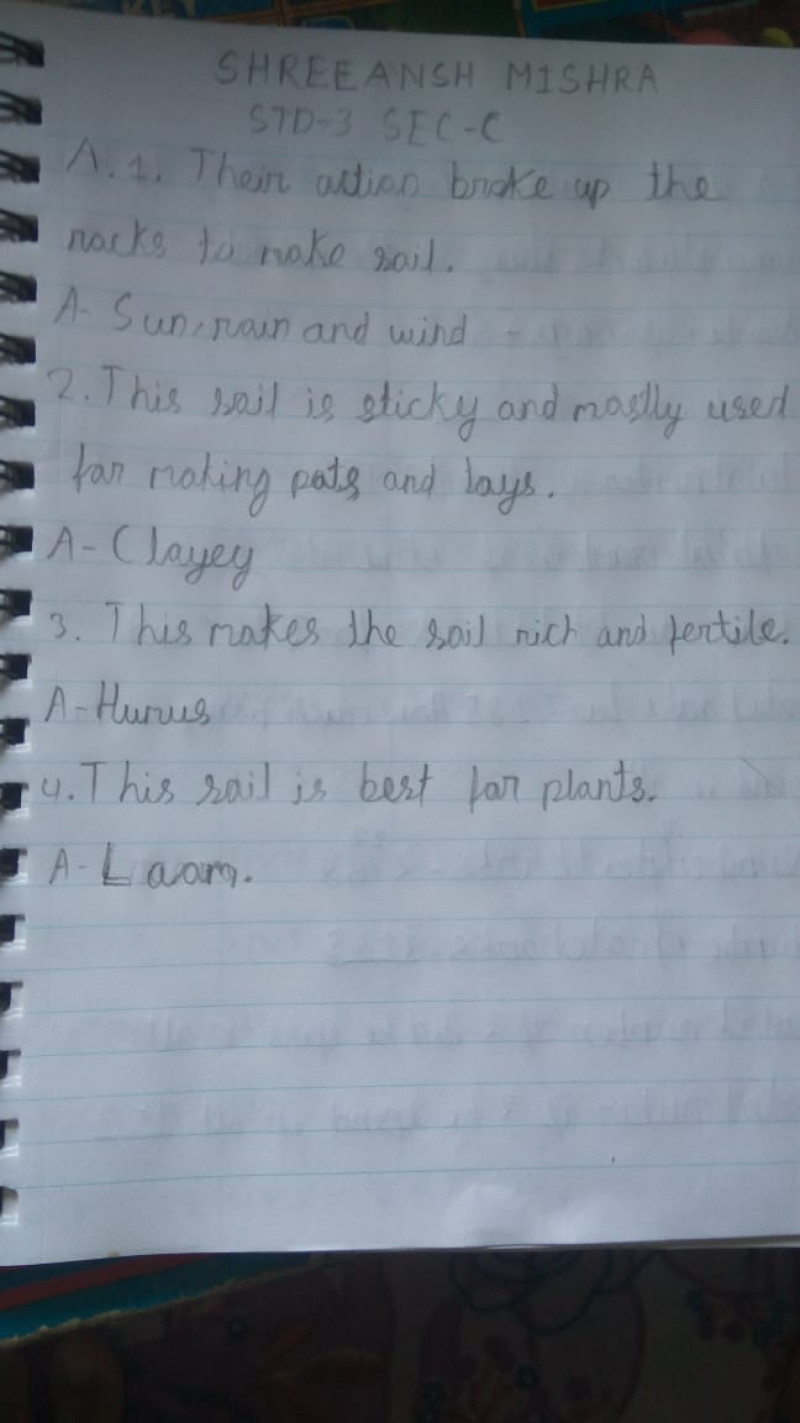 SHREEANSH MISHRA
STD-3 SEC-C
A.1. Their action broke up the
rocks to make soil.
A- Sun, rain and wind
2. This soil is sticky and mostly used
for making pots and toys.
A- Clayey
3. This makes the soil rich and fertile.
A- Humus
4. This soil is best for plants.
A- Loam.